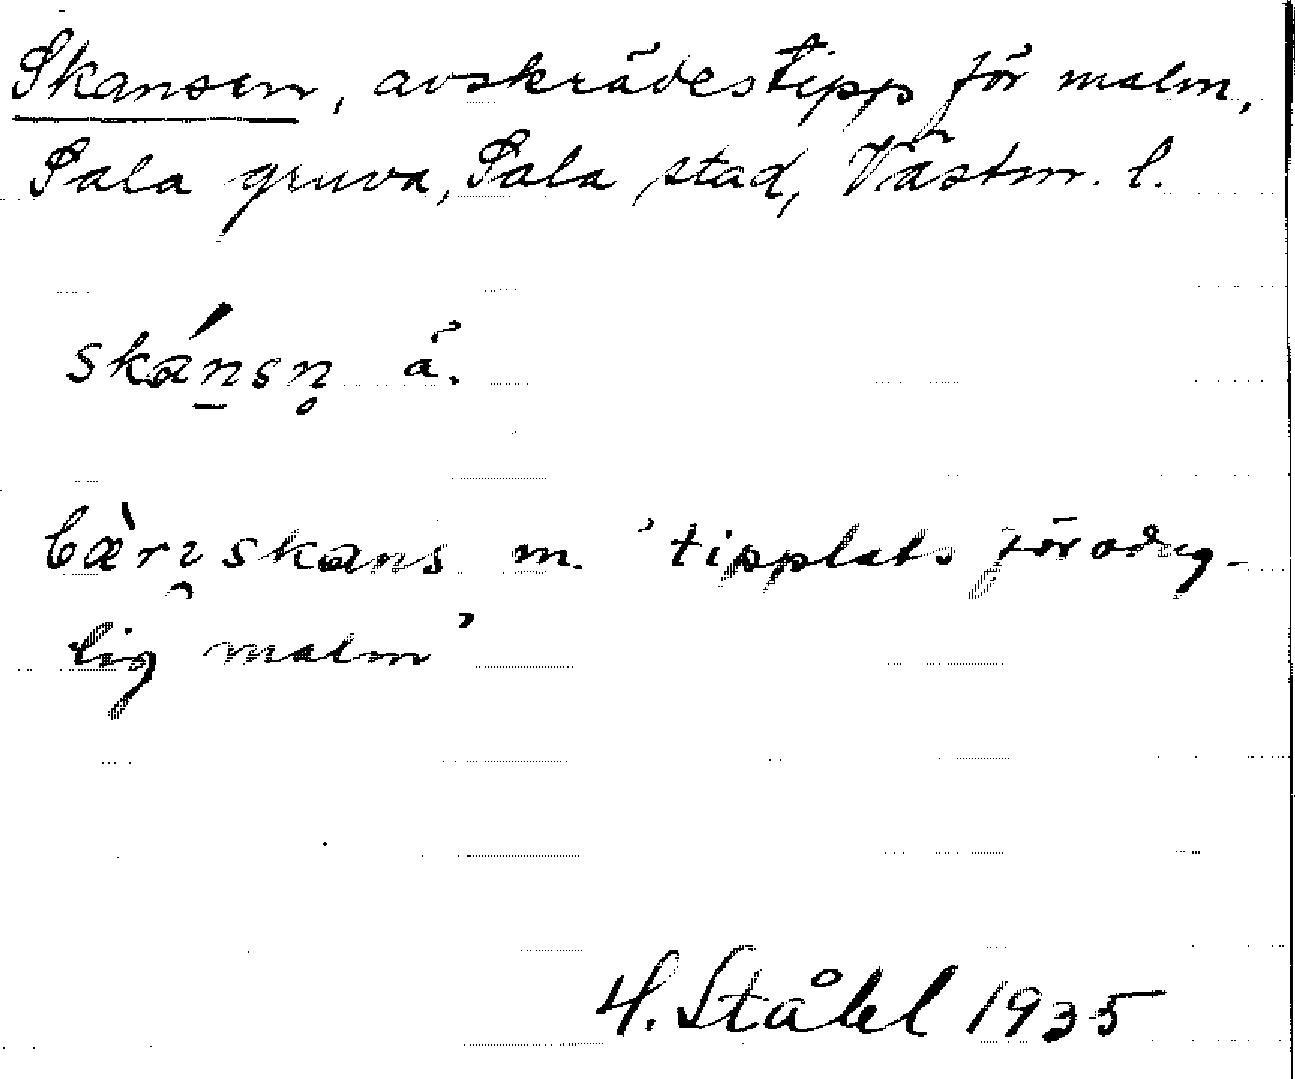 Skansen, avskrädestipp för malm,
Sala gruva, Sala stad, Västm. l.
skánsn̥ ä.
bæ̀rı̯skans m. 'tipplats för odug-
lig malm'
H. Ståhl 1935